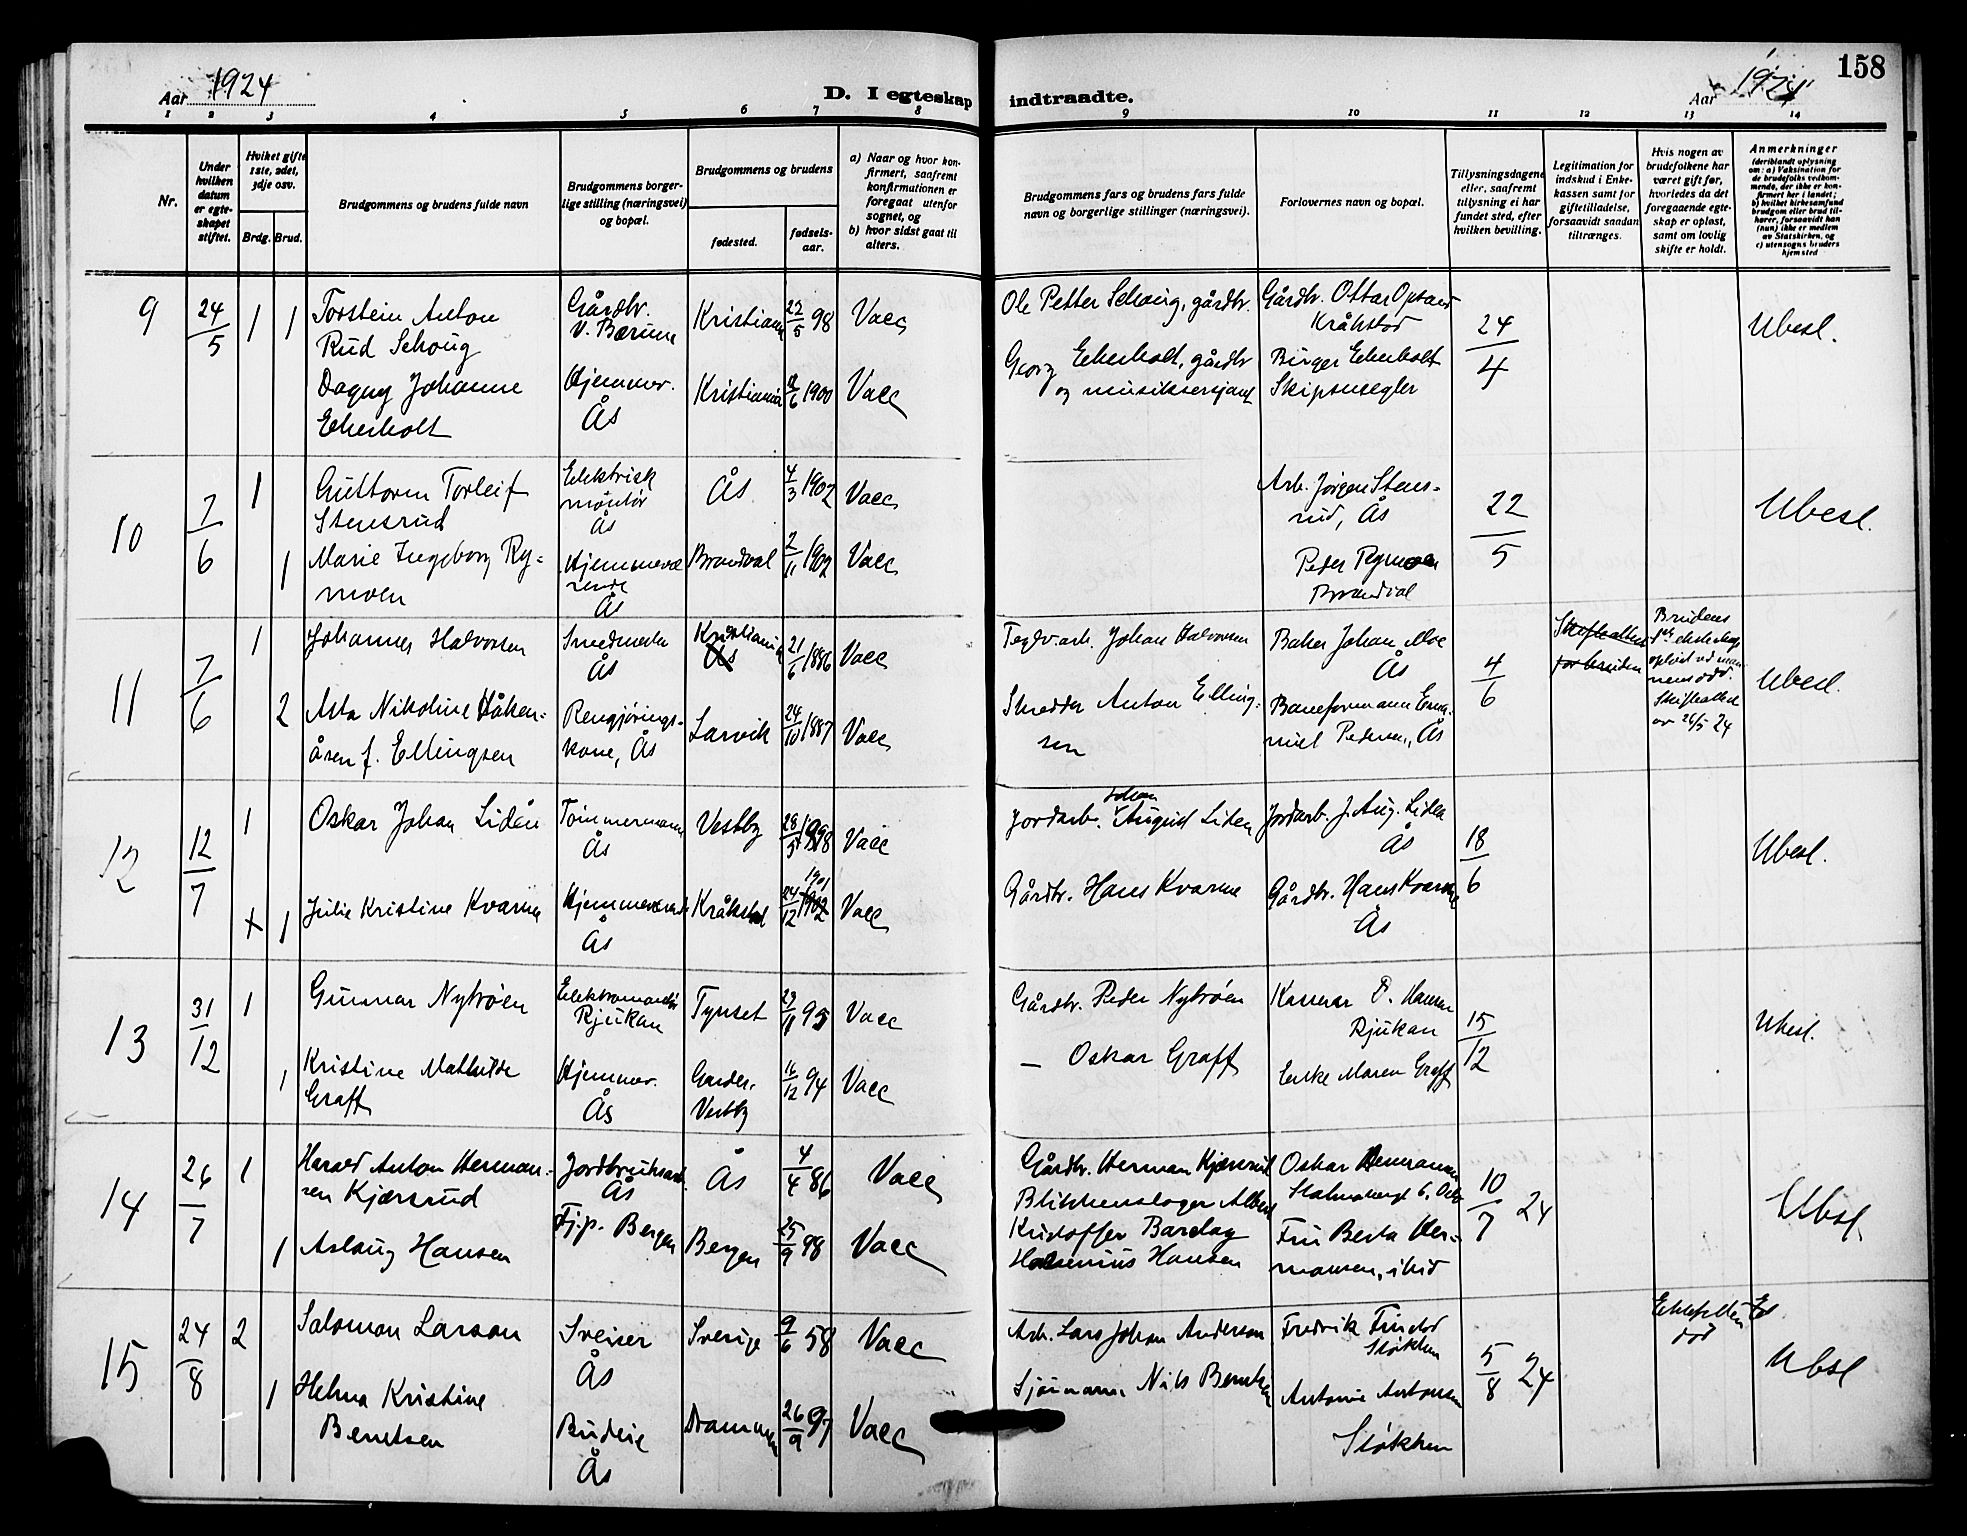 158
Aar 1924
D. I egteskap indtraadte.
Aar 1924
1 2 3 4 5 6 7 8 9 10 11 12 13 14
Nr.
Under hvilken datum er egteskapet stiftet.
Hvilket gifte 1ste, 2det, 3dje osv.
Brdg. Brud.
Brudgommens og brudens fulde navn
Brudgommens borgerlige stilling (næringsvei) og bopæl.
Brudgommens og brudens
fødested.
fødselsaar.
a) Naar og hvor konfirmert, saafremt konfirmationen er foregaat utenfor sognet, og
b) hvor sidst gaat til alters.
Brudgommens fars og brudens fars fulde navn og borgerlige stillinger (næringsvei).
Forlovernes navn og bopæl.
Tillysningsdagene eller, saafremt tillysning ei har fundet sted, efter hvilken bevilling.
Legitimation for indskud i Enkekassen samt for giftetilladelse, forsaavidt saadan tiltrænges.
Hvis nogen av brudefolkene har været gift før, hvorledes da det foregaaende egteskap er opløst, samt om lovlig skifte er holdt.
Anmerkninger (deriblandt oplysning om: a) Vaksination for de brudefolks vedkommende, der ikke er konfirmert her i landet; b) hvilket kirkesamfund brudgom eller brud tilhører, forsaavidt han (hun) ikke er medlem av Statskirken, og c) utensogns bruders hjemsted
9 24/5 1 1 Torstein Anton
Rud Schoug
Gårdbr.
V. Bærum
Kristiania 22/5 98 Vacc
Ole Petter Schoug, gårdbr.
Gårdbr. Ottar Opsand
Kråkstad
24/4
Ubesl.
Dagny Johanne
Ekerholt
Hjemmev.
Ås
Kristiania 12/6 1900 Vacc
Georg Ekerholt, gårdbr
og musiksersjant
Birger Ekerholt
10 7/6 1 Guttorm Torleif
Stensrud
Elektrisk
montør
Ås
Ås 4/3 1902 Vacc
Arb. Jørgen Stens-
rud, Ås
22/5
Ubesl.
1 Marie Ingeborg Ry-
moen
Hjemmevæ
rende
Ås
Brandval 2/11 1902 Vacc
Peder Rymoen
Brandval
11 7/6 1 Johannes Halvorsen
Ås
Kristiania
Ås
21/6 1886 Vacc
Teglv.arb. Johan Halvorsen
Baker Johan Moe
Ås
4/6
Skifteattest
for bruden
Brudens
1ste ekteskap
opløst ved man-
nens død.
Skifteattest
av 26/5 24
Ubesl.
2 Asta Nikoline Håken-
åsen f. Ellingsen
Rengjørings-
kone, Ås
Larvik 24/10 1887 Vacc
Skredder Anton Elling-
sen
Baneformann Ema-
nuel Pedersen, Ås
12 12/7 1 Oskar Johan Lidén
Tømmermann
Ås
Vestby 28/5 1898 Vacc
Johan
Jordarb. August Liden
Jordarb. J. Aug. Liden
Ås
18/6
Ubesl.
x 1 Julie Kristine Kvarme
Hjemmeværende
Ås
Kråkstad 24/12 1901 1902 Vacc
Gårdbr. Hans Kvarme
Gårdbr. Hans Kvarme
Ås
13 31/12 1 Gunnar Nytrøen
Elektromontør
Rjukan
Tynset 23/11 95 Vacc
Gårdbr. Peder Nytrøen
Hansen
Rjukan
15/12
Ubesl.
1 Kristine Mathilde
Graff
Hjemmev.
Ås
Garder,
Vestby
16/12 94 Vacc
— Oskar Graff
Enke Maren Graff
14 26/7 1 Harald Anton Herman-
sen Kjærsrud
Jordbruksarb.
Ås
Ås 4/4 86 Vacc
Gårdbr. Herman Kjærsrud
Oskar Hermansen
10/7 24
Ubsl
1 Aslaug Hansen
Tj.p. Bergen
Bergen 25/9 98 Vacc
Blikkenslager Albert
Kristoffer Barclay
Hansen
Fru Berta Her-
mansen, ibid
15 24/8 2 Salomon Larsson
Sveiser
Ås
Sverige 9/6 58 Vacc
Arb. Lars Johan Anderson
Fredrik
Støkken
5/8 24
død
Ubsl
1 Helma Kristine
Berntsen
Budeie
Ås
Drammen 26/9 97 Vacc
Sjømann Nils Berntsen
Antonie Antonsen
Støkken